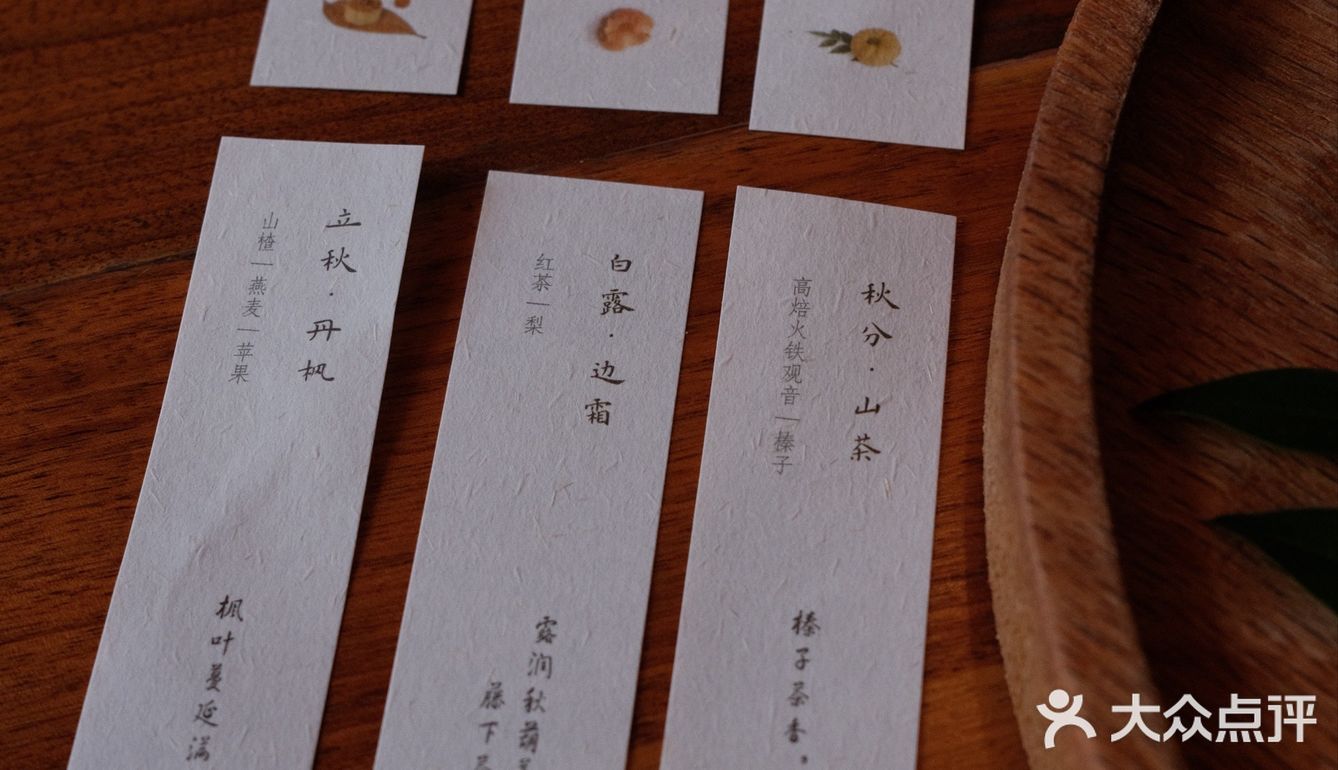 立秋·丹枫
山楂|燕麦|苹果
枫叶蔓延满
白露·边霜
红茶|梨
露润秋萌
藤下
秋分·山茶
高焙火铁观音|榛子
榛子茶香。
大众点评